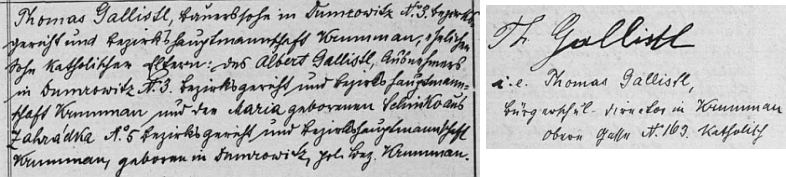 Thomas Gallistl, Bauerssohn in Dumrowitz N. 3. Bezirks-
gericht und Bezirkshauptmannschaft Krummau, ehelicher
Sohn katholischer Eltern: des Albert Gallistl, Ausnehmers
in Dumrowitz N. 3. Bezirksgericht und Bezirkshauptmann-
schaft Krummau und der Maria geborenen Schinko aus
Zahrádka N. 5 Bezirksgericht und Bezirkshauptmannschaft
Krummau, geboren in Dumrowitz, pol. Bez. Krummau.
Th Gallistl
i. e. Thomas Gallistl,
Bürgerschul-Director in Krummau
Obere Gasse N. 163. Katholisch